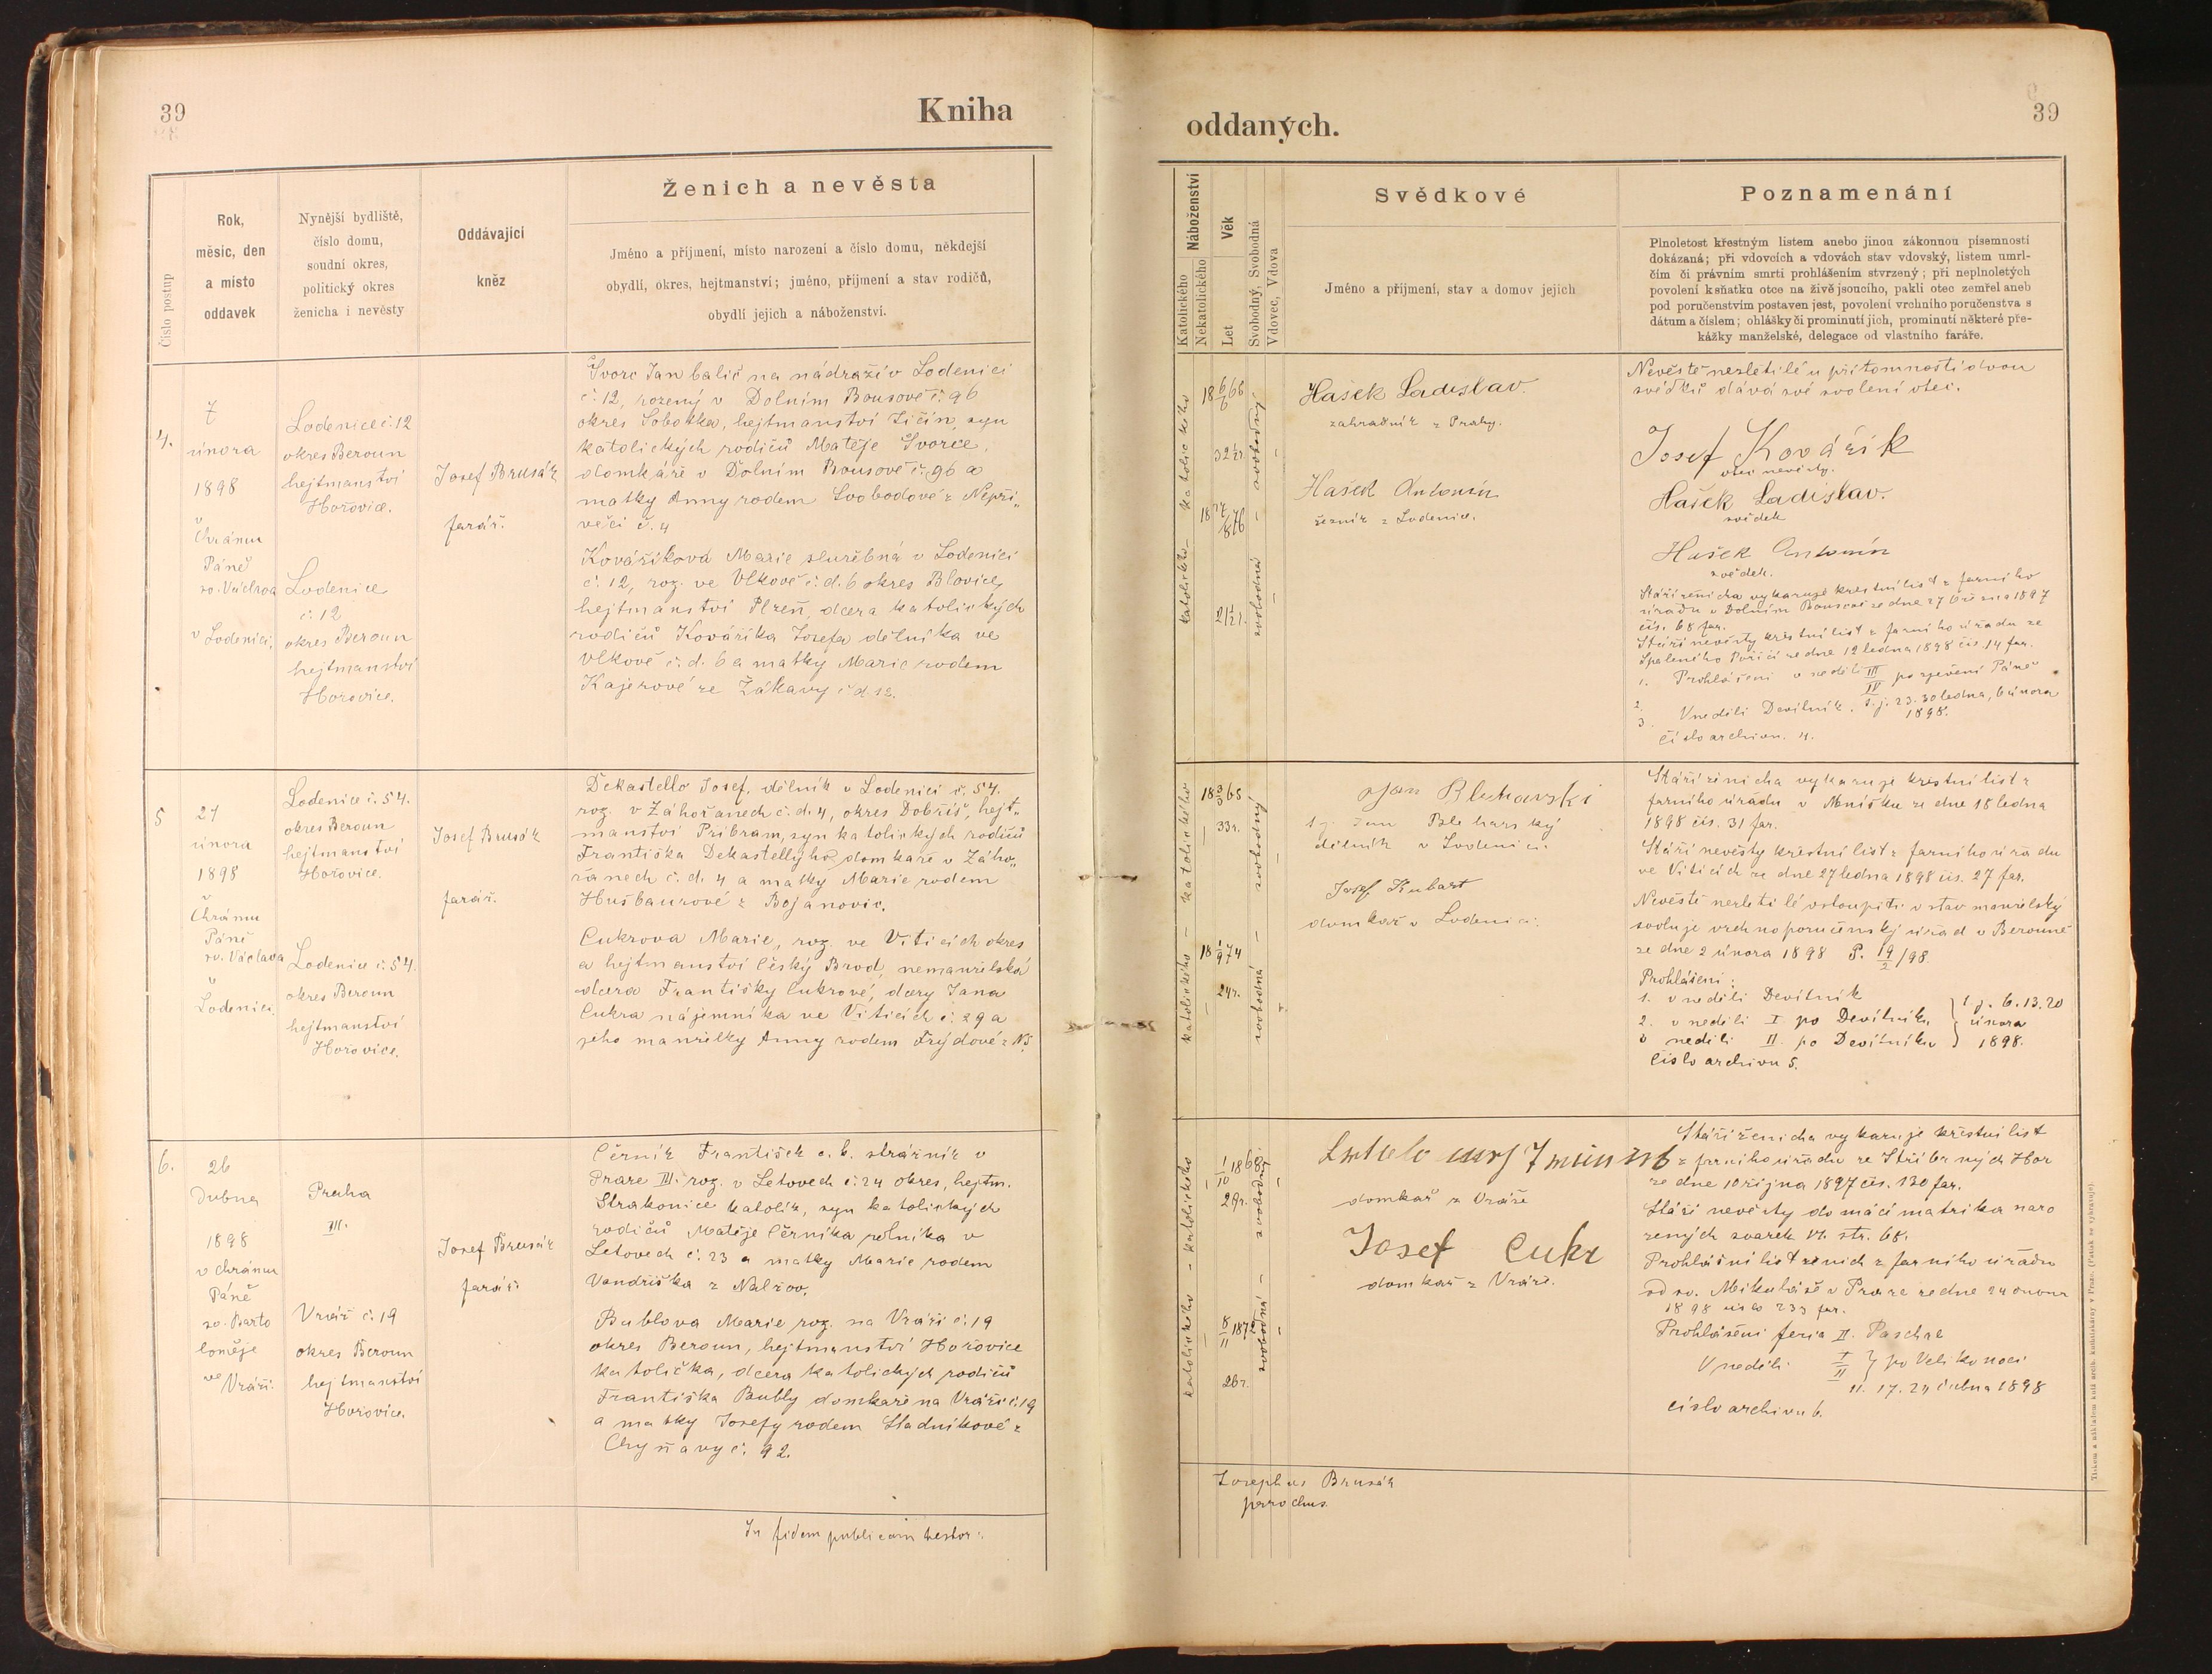 39
Kniha
Ženich a nevěsta
Číslo postup
Rok,
měsíc, den
a místo
oddavek
Nynější bydliště,
číslo domu,
soudní okres,
politický okres
ženicha i nevěsty
Oddávající
kněz
Jméno a příjmení, místo narození a číslo domu, někdejší
obydlí, okres, hejtmanství; jméno, příjmení a stav rodičů,
obydlí jejich a náboženství.
4.
7
února
1898
v
Chrámu
Páně
sv. Václava
v Lodenici,
Lodenice č. 12
okres Beroun
hejtmanství
Hořovice.
Lodenice
č. 12
okres Beroun
hejtmanství
Hořovice.
Josef Brusák
farář.
Švorc Jan balič na nádraží v Lodenici
č. 12, rozený v Dolním Bousově č. 96
okres Sobotka, hejtmanství Jičín, syn
katolických rodičů Matěje Švorce,
domkáře v Dolním Bousově č. 96 a
matky Anny rodem Svobodové z Nepři„
věci č. 4
Kovaříkova Marie služebná v Lodenici
č. 12, roz. ve Vlkově č. d. 6 okres Blovice,
hejtmanství Plzeň, dcera katolických
rodičů Kováříka Josefa dělníka ve
Vlkově č. d. 6 a matky Marie rodem
Kajerové ze Žákavy č. d. 12.
5
21
února
1898
v
Chrámu
Páně
sv. Václava
v
Lodenici.
Lodenice č. 54.
okres Beroun
hejtmanství
Hořovice.
Lodenice č. 54.
okres Beroun
hejtmanství
Hořovice.
Josef Brusák
farář.
Dekastello Josef, dělník v Lodenici č. 54.
roz. v Záhořanech č. d. 4, okres Dobříš, hejt„
manství Příbram, syn katolických rodičů
Františka Dekastellýho domkaře v Záho„
řanech č. d. 4 a matky Marie rodem
Hušbaurové z Bojanovic.
Cukrova Marie, roz. ve Viticích okres
a hejtmanství Český Brod, nemanželská
dcera Františky Cukrové, dcery Jana
Cukra nájemníka ve Viticích č. 29 a
jeho manželky Anny rodem Frýdové z
6.
26
dubna
1898
v chrámu
Páně
sv. Barto
loměje
ve Vráži.
Praha
III.
Vráž č. 19
okres Beroun
hejtmanství
Hořovice.
Josef Brusák
farář.
Černík František c. k. strážník v
Praze III. roz. v Letovech č. 24 okres, hejtm.
Strakonice katolík, syn katolických
rodičů Matěje Černíka rolníka v
Letovech č. 23 a matky Marie rodem
Vondriška z Nalžov.
Bublova Marie roz. na Vráži č. 19
okres Beroun, hejtmanství Hořovice
katolička, dcera katolických rodičů
Františka Bubly domkaře na Vráži č. 19
a matky Josefy rodem Sladníkové z
Chyňavy č. 92.
In fidem publicam testor:
39
oddaných.
Náboženství
Katolického
Nekatolického
Věk
Let
Svobodný, Svobodná
Vdovec, Vdova
Svědkové
Jméno a příjmení, stav a domov jejich
Poznamenání
Plnoletost křestným listem anebo jinou zákonnou písemností
dokázaná; při vdovcích a vdovách stav vdovský, listem umrl-
čím či právním smrti prohlášením stvrzený; při neplnoletých
povolení k sňatku otce na živě jsoucího, pakli otec zemřel aneb
pod poručenstvím postaven jest, povolení vrchního poručenstva s
dátum a číslem; ohlášky či prominutí jich, prominutí některé pře-
kážky manželské, delegace od vlastního faráře.
katolického – katolického
18 6/6 66
32 ½ r.
svobodný
svobodná
21 ½ r.
Hašek Ladislav.
zahradník z Prahy.
Hašek Antonín
řezník z Lodenice.
Nevěstě nezletilé u přítomnosti dvou
svědků dává své svolení otec.
Josef Kovářik
otec nevěsty.
Hašek Ladislav.
svědek
Hašek Antonín
svědek.
Stáří ženicha vykazuje křestní list z farního
úřadu v Dolním Bousově ze dne 27 března 1897
čís. 68 far.
Stáří nevěsty křestní list z farního úřadu ze
Spáleného Poříčí ze dne 12 ledna 1898 čís. 14 far.
1. Prohlášení v neděli III po zjevení Páně
2. IV
3. V neděli Devítník. t. j. 23. 30 ledna, 6 února
1898.
Číslo archivu. 4.
katolického – katolického
18 3/3 65
33 r.
svobodný
18 1/9 74
24 r.
svobodná
Jan Blehavski
t. j. Jan Bleharský
dělník v Lodenici.
Josef Kubart
domkař v Lodenici.
Stáří ženicha vykazuje křestní list z
farního úřadu v Mníšku ze dne 18 ledna
1898 čís. 31 far.
Stáří nevěsty křestní list z farního úřadu
ve Viticích ze dne 27 ledna 1898 čís. 27 far.
Nevěstě nezletilé vstoupiti v stav manželský
svoluje vrchnoporučenský úřad v Berouně
ze dne 2 února 1898 P. 19/2 /98.
Prohlášení:
1. v neděli Devítník
2. v neděli I po Devítníku
3 neděli II. po Devítníku
t. j. 6. 13. 20
února
1898.
Číslo archivu 5.
katolického – katolického
1/10 1868
29 r.
svobodný
8/11 1872
26 r.
svobodná
domkař z Vráže
Josef Cukr
domkař z Vráže.
Stáří ženicha vykazuje křestní list
z farního úřadu ze Stříbrných Hor
ze dne 10 října 1897 čís. 130 far.
Stáří nevěsty domácí matrika naro
zených svazek str. 68.
Prohlášní list ženich z farního úřadu
od sv. Mikuláše v Praze ze dne 24
1898 číslo 233 far.
Prohlášení feria II. Paschae
V neděli I II } po Velikonoci
11. 17. 24 dubna 1898
číslo archivu 6.
Josephus Brusák
parochus